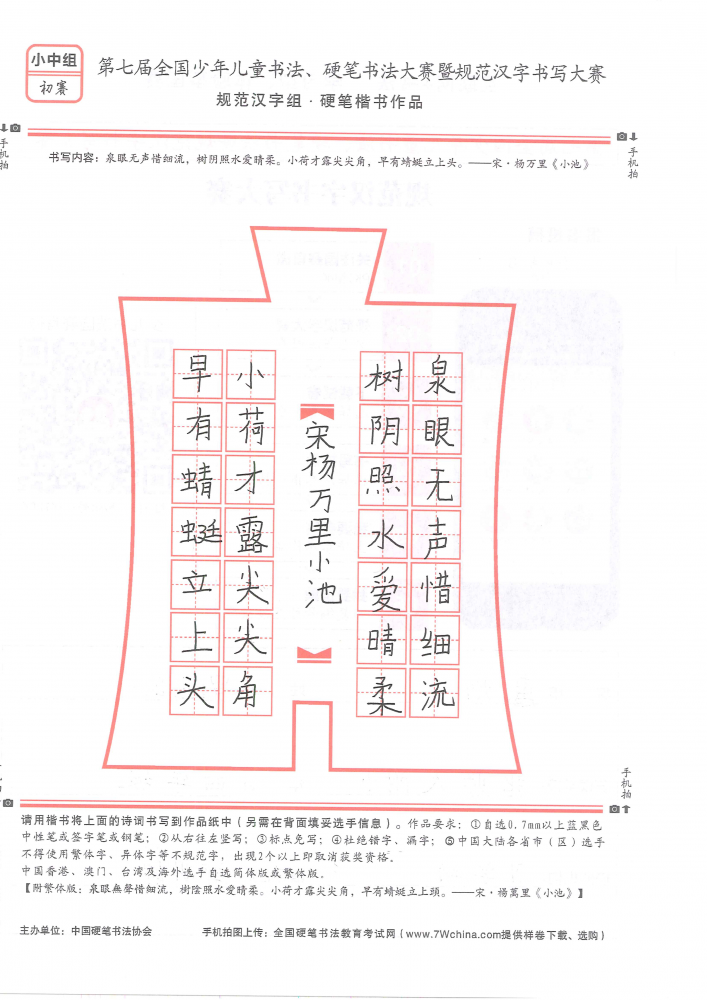 小中组
初赛
第七届全国少年儿童书法、硬笔书法大赛暨规范汉字书写大赛
规范汉字组·硬笔楷书作品
手机拍
手机拍
书写内容：泉眼无声惜细流，树阴照水爱晴柔。小荷才露尖尖角，早有蜻蜓立上头。——宋·杨万里《小池》
泉眼无声惜细流
树阴照水爱晴柔
宋杨万里小池
小荷才露尖尖角
早有蜻蜓立上头
手机拍
请用楷书将上面的诗词书写到作品纸中（另需在背面填妥选手信息）。作品要求：①自选0.7mm以上蓝黑色
中性笔或签字笔或钢笔；②从右往左竖写；③标点免写；④杜绝错字、漏字；⑤中国大陆各省市（区）选手
不得使用繁体字、异体字等不规范字，出现2个以上即取消获奖资格。
中国香港、澳门、台湾及海外选手自选简体版或繁体版。
【附繁体版：泉眼無聲惜細流，樹陰照水愛晴柔。小荷才露尖尖角，早有蜻蜓立上頭。——宋·楊萬里《小池》】
主办单位：中国硬笔书法协会
手机拍图上传：全国硬笔书法教育考试网（www.7Wchina.com提供样卷下载、选购）